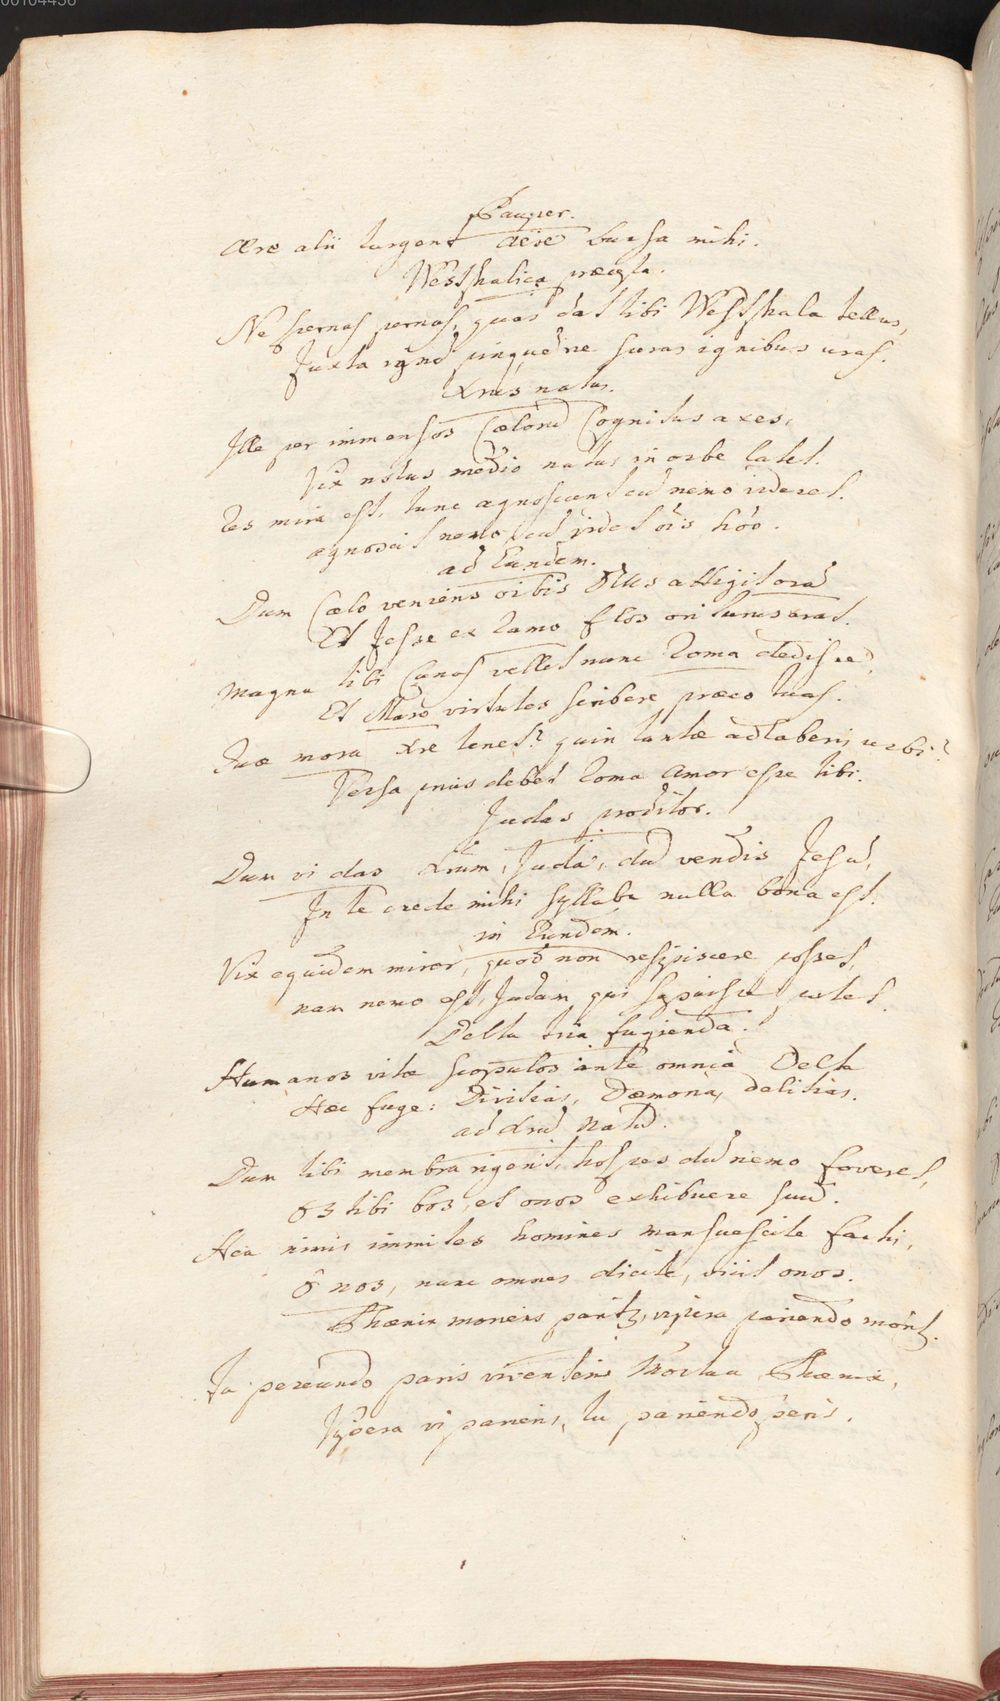 00104456
Pauper.
Ære alii turgent aëre bursa mihi.
Westphalica præcepta.
Ne spernas pernas, quas dat tibi Westphala tellus,
Juxta ignē pinguedine suras ignibus uras.
Xrus natus.
Ille per immensos Cœlorū Cognitus axes,
Vix notus medio natus in orbe latet.
Res mira est, tunc agnoscunt cū nemo videret.
agnoscit nemo, cū videt oīs hōo.
ad Eundem.
Dum Cœlo veniens orbis Deus attigit orā
Et Jesse ex ramo flos oriturus erat.
Magna tibi Cunas vellet nunc Roma dedisse,
Et Maro virtutes scribere præco tuas.
Quæ mora Xre tenet? quin tantæ adlaberis urbi?
Versa prius debet Roma Amor esse tibi.
Judas proditor.
Dum vi das Xrum, Juda, dū vendis Jesū,
In te crede mihi syllaba nulla bona est.
in Eundem.
Vix equidem miror, quod non resipiscere posset,
nam nemo est, Judam qui sapuisse putet.
Delta tria fugienda.
Humanos vitæ scopulos ante omnia Delta
Hæc fuge: Divitias, Dæmona, delitias.
ad Xrū Natū.
Dum tibi membra rigent, hospes dū nemo foveret,
os tibi bos, et onos exhibuere suū.
Heu nimis immites homines mansuescite facti,
ô nos, nunc omnes dicite, vicit onos.
Phœnix moriens parit, vipera pariendo morit.
Tu pereundo paris viventem Mortua Phœnix,
Vipera vi pariens, tu pariendo peris.